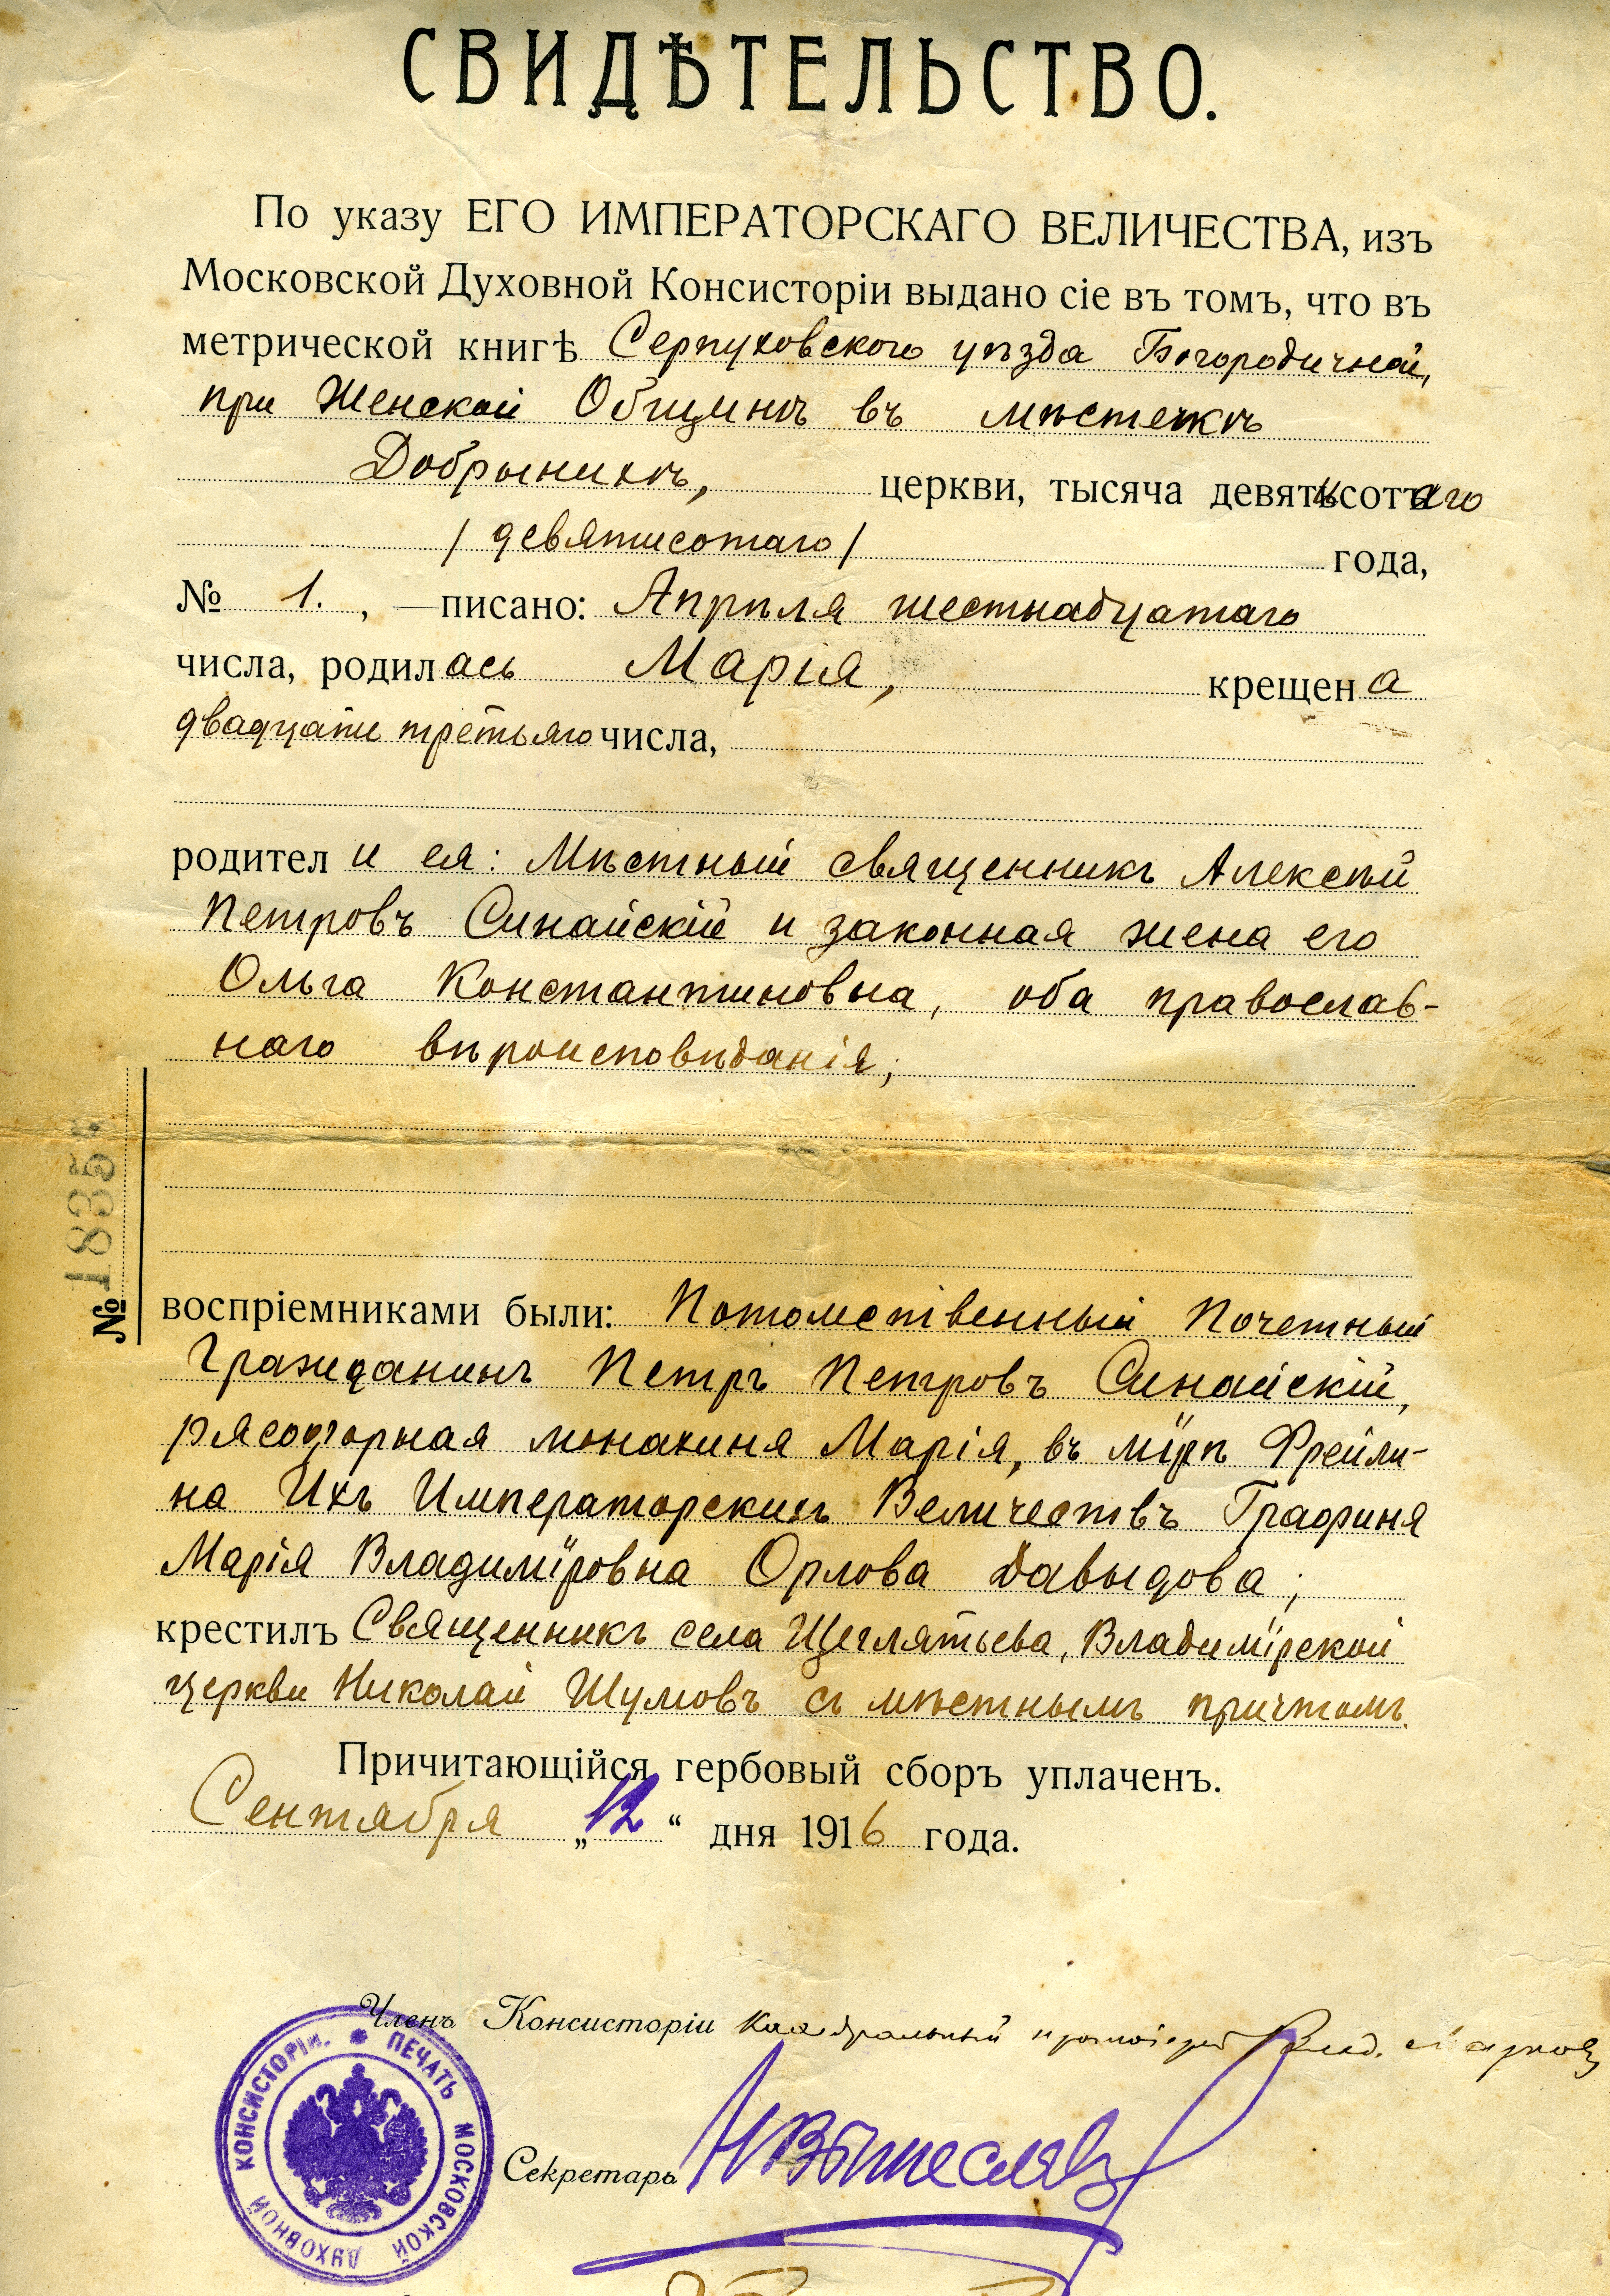 СВИДѢТЕЛЬСТВО.
По указу ЕГО ИМПЕРАТОРСКАГО ВЕЛИЧЕСТВА, изъ
Московской Духовной Консисторіи выдано сіе въ томъ, что въ
метрической книгѣ Серпуховского уѣзда Богородичной,
при Женской Общинѣ въ мѣстечкѣ
Добрынихѣ, церкви, тысяча девятисотаго
/девятисотаго/ года,
№ 1., —писано: Апрѣля шестнадцатаго
числа, родилась Марія, крещена
двадцати третьяго числа,
родители ея: Мѣстный священникъ Алексѣй
Петровъ Синайскій и законная жена его
Ольга Константиновна, оба православ-
наго вѣроисповѣданія;
№ 1835
воспріемниками были: Потомственный Почетный
Гражданинъ Петръ Петровъ Синайскій,
рясофорная монахиня Марія, въ мірѣ Фрейли-
на Ихъ Императорскихъ Величествъ Графиня
Марія Владиміровна Орлова Давыдова;
крестилъ Священникъ села Щеглятьева, Владимірской
церкви Николай Шумовъ съ мѣстнымъ причтомъ.
Причитающійся гербовый сборъ уплаченъ.
Сентября „12“ дня 1916 года.
Членъ Консисторіи Каѳедральный протоіерей Влад. Марковъ
ПЕЧАТЬ МОСКОВСКОЙ ДУХОВНОЙ КОНСИСТОРІИ.
Секретарь